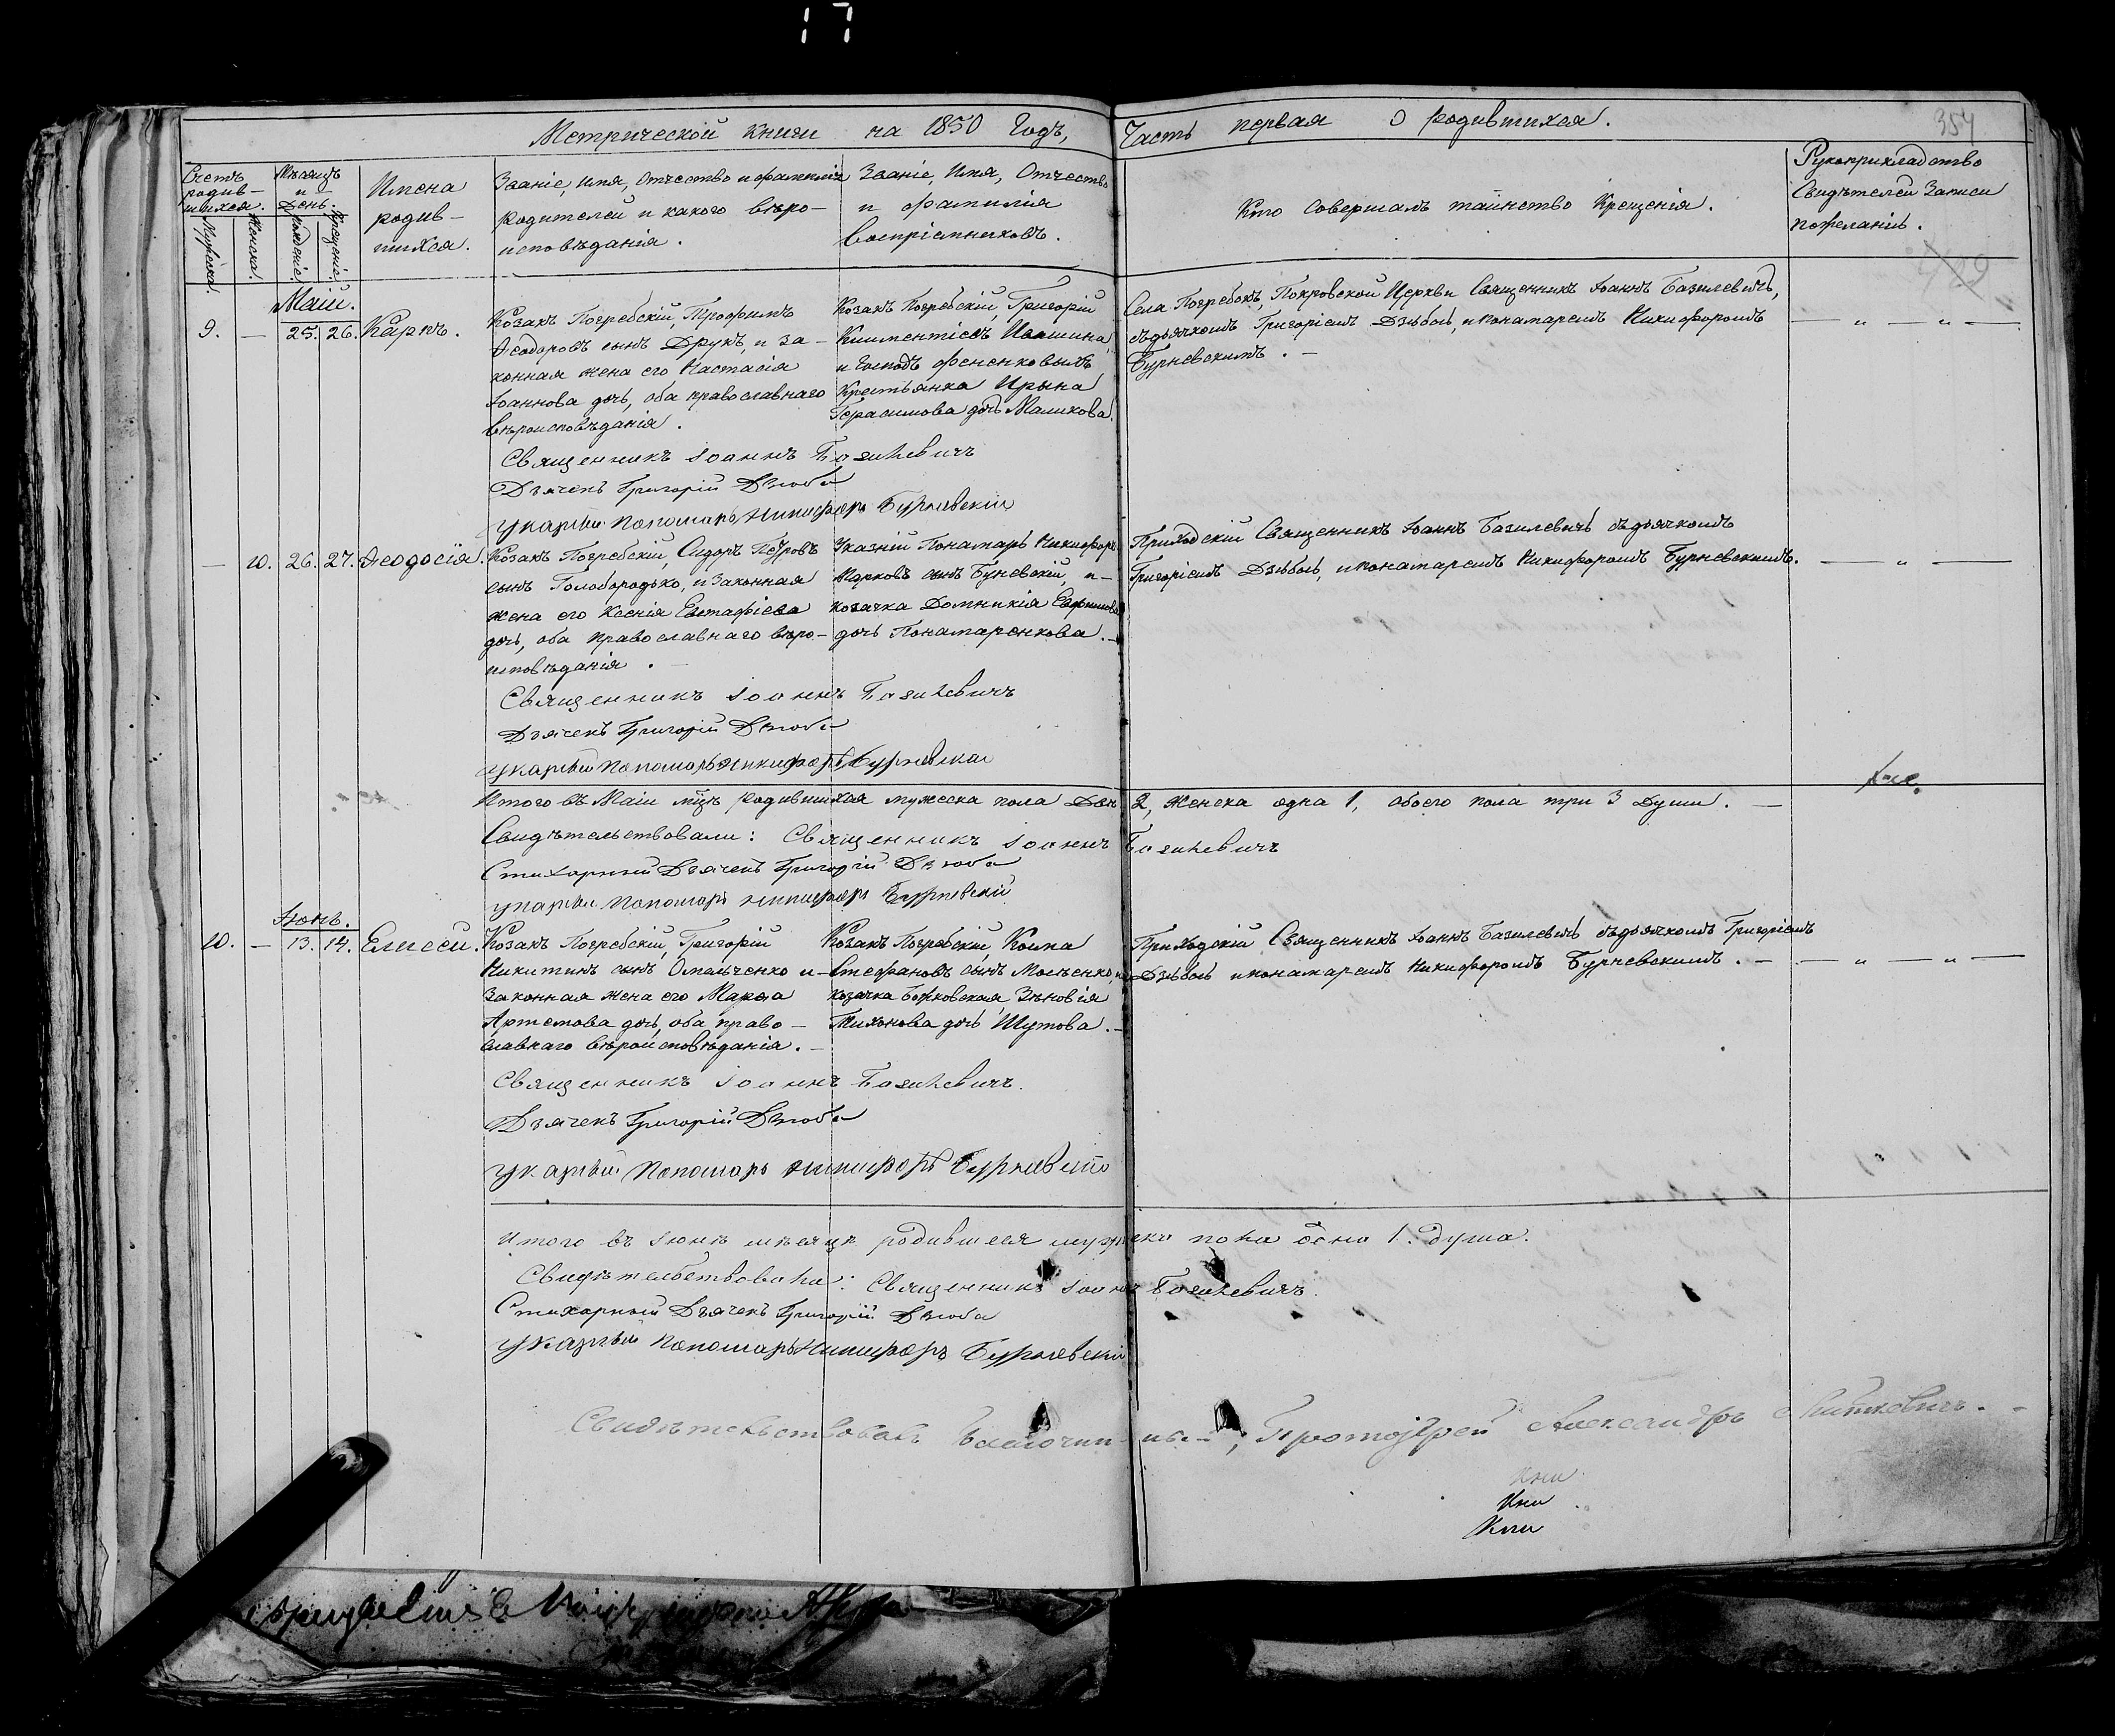 Метрической книги на 1850 Годъ, Часть первая О родившихся.
354
Счетъ родив-шихся.
Мужеска.
Женска.
Мѣсяцъ и День.
Рожденіе.
Крещеніе.
Имена
родив-
шихся.
Званіе, имя, Отчество и фамилія
родителей и какого вѣро-
исповѣданія.
Званіе, Имя, Отчество
и фамилія
воспріемниковъ.
Кто Совершалъ таинство Крещенія.
Рукоприкладство
Свидѣтелей Записи
пожеланію.
Маіи.
9. — 25. 26. Карпъ.
Козакъ Погребскій, Трофимъ
Ѳеодоровъ сынъ Друкъ, и за-
конная жена его Настасія
Іоаннова дочь, оба православнаго
вѣроисповѣданія.
Козакъ Погребскій, Григорій
Климентіевъ
и Господъ Фененковыхъ
Крестьянка Ирына
Герасимова дочь Маликова.
Села Погребокъ, Покровской Церкви Священникъ Іоаннъ Базилевичъ,
съ дьячкомъ Григоріемъ Дзюбою, и понамаремъ Никифоромъ
Бурневскимъ. —
— " — " —
Священникъ Іоаннъ Базилевичъ
Дьячекъ Григорій Дзюба
указный пономарь Никифоръ Бурневскій
— 10. 26. 27. Ѳеодосія.
Козакъ Погребскій, Сидоръ Петровъ
сынъ Голобородько, и Законная
жена его Ксенія Евстафіева
дочь, оба православнаго вѣро-
исповѣданія. —
Указній Понамарь Никифоръ
Марковъ сынъ Буневскій, и-
козачка Домникія Евфимова
дочь Понамаренкова. —
Приходскій Священникъ Іоаннъ Базилевичъ съ дьячкомъ
Григоріемъ Дзюбою, и понамаремъ Никифоромъ Бурневскимъ.
— " —
Священникъ Іоаннъ Базилевичъ
Дьячекъ Григорій Дзюба
указный пономарь Никифоръ Бурневскій
Итого въ Маіи мцѣ родившихся мужеска пола два 2, женска одна 1, обоего пола три 3 Души. —
Свидѣтельствовали: Священникъ Іоаннъ Базилевичъ
Стихарный Дьячекъ Григорій Дзюба
указный пономарь Никифоръ Бурневскій
Іюнь.
10. — 13. 14. Елисей.
Козакъ Погребскій, Григорій
Никитинъ сынъ Омельченко и
Законная жена его Марѳа
Артемова дочь, оба право-
славнаго вѣроисповѣданія. —
Козакъ Погребскій, Косма
Стефановъ сынъ Мосѣенко, и
козачка Божковская Зѣновія
Тихонова дочь Шутова. —
Приходскій Священникъ Іоаннъ Базилевичъ съ дьячкомъ Григоріемъ
Дзюбою и понамаремъ Никифоромъ Бурневскимъ. —
— " — " —
Священникъ Іоаннъ Базилевичъ.
Дьячекъ Григорій Дзюба
указный пономарь Никифоръ Бурневскій
Итого въ Іюнѣ мѣсяцѣ родившееся мужеска пола одна 1. душа.
Свидѣтельствовали: Священникъ Іоаннъ Базилевичъ.
Стихарный Дьячекъ Григорій Дзюба
указный пономарь Никифоръ Бурневскій
Свидѣтельствовалъ Благочинный, Протоіерей Александръ
Кни
Кни
Кни